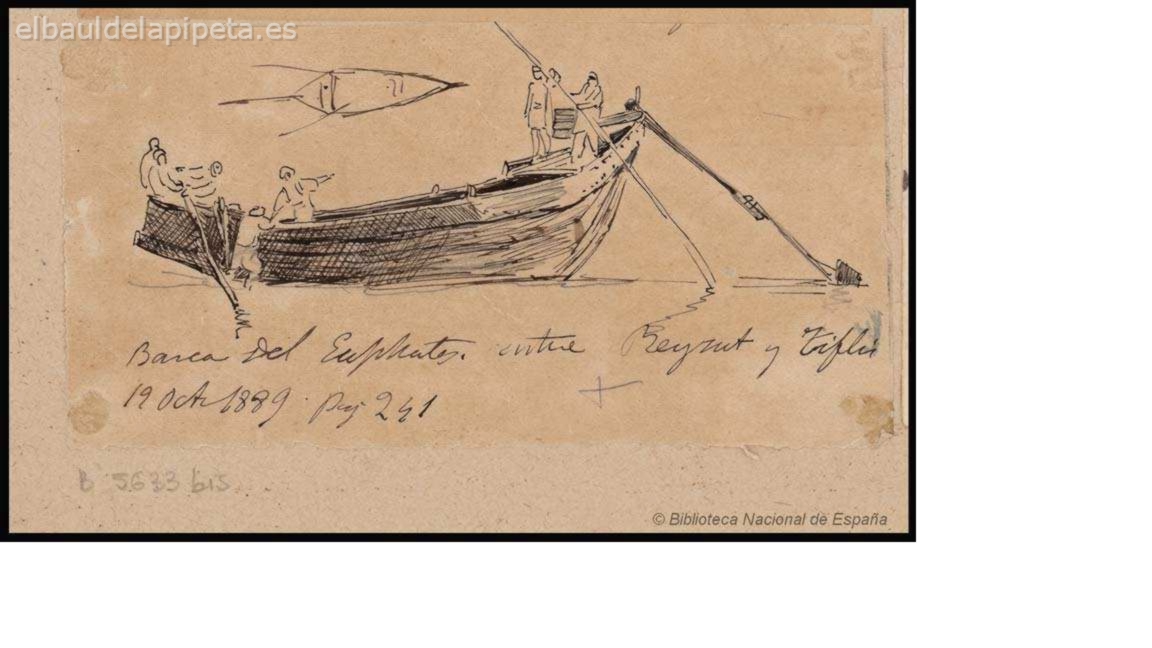 elbauldelapipeta.es
Barca del Euphrates. entre Beyrut y Tiflis
19 Oct 1889. Pag 241
B 5633 bis
© Biblioteca Nacional de España